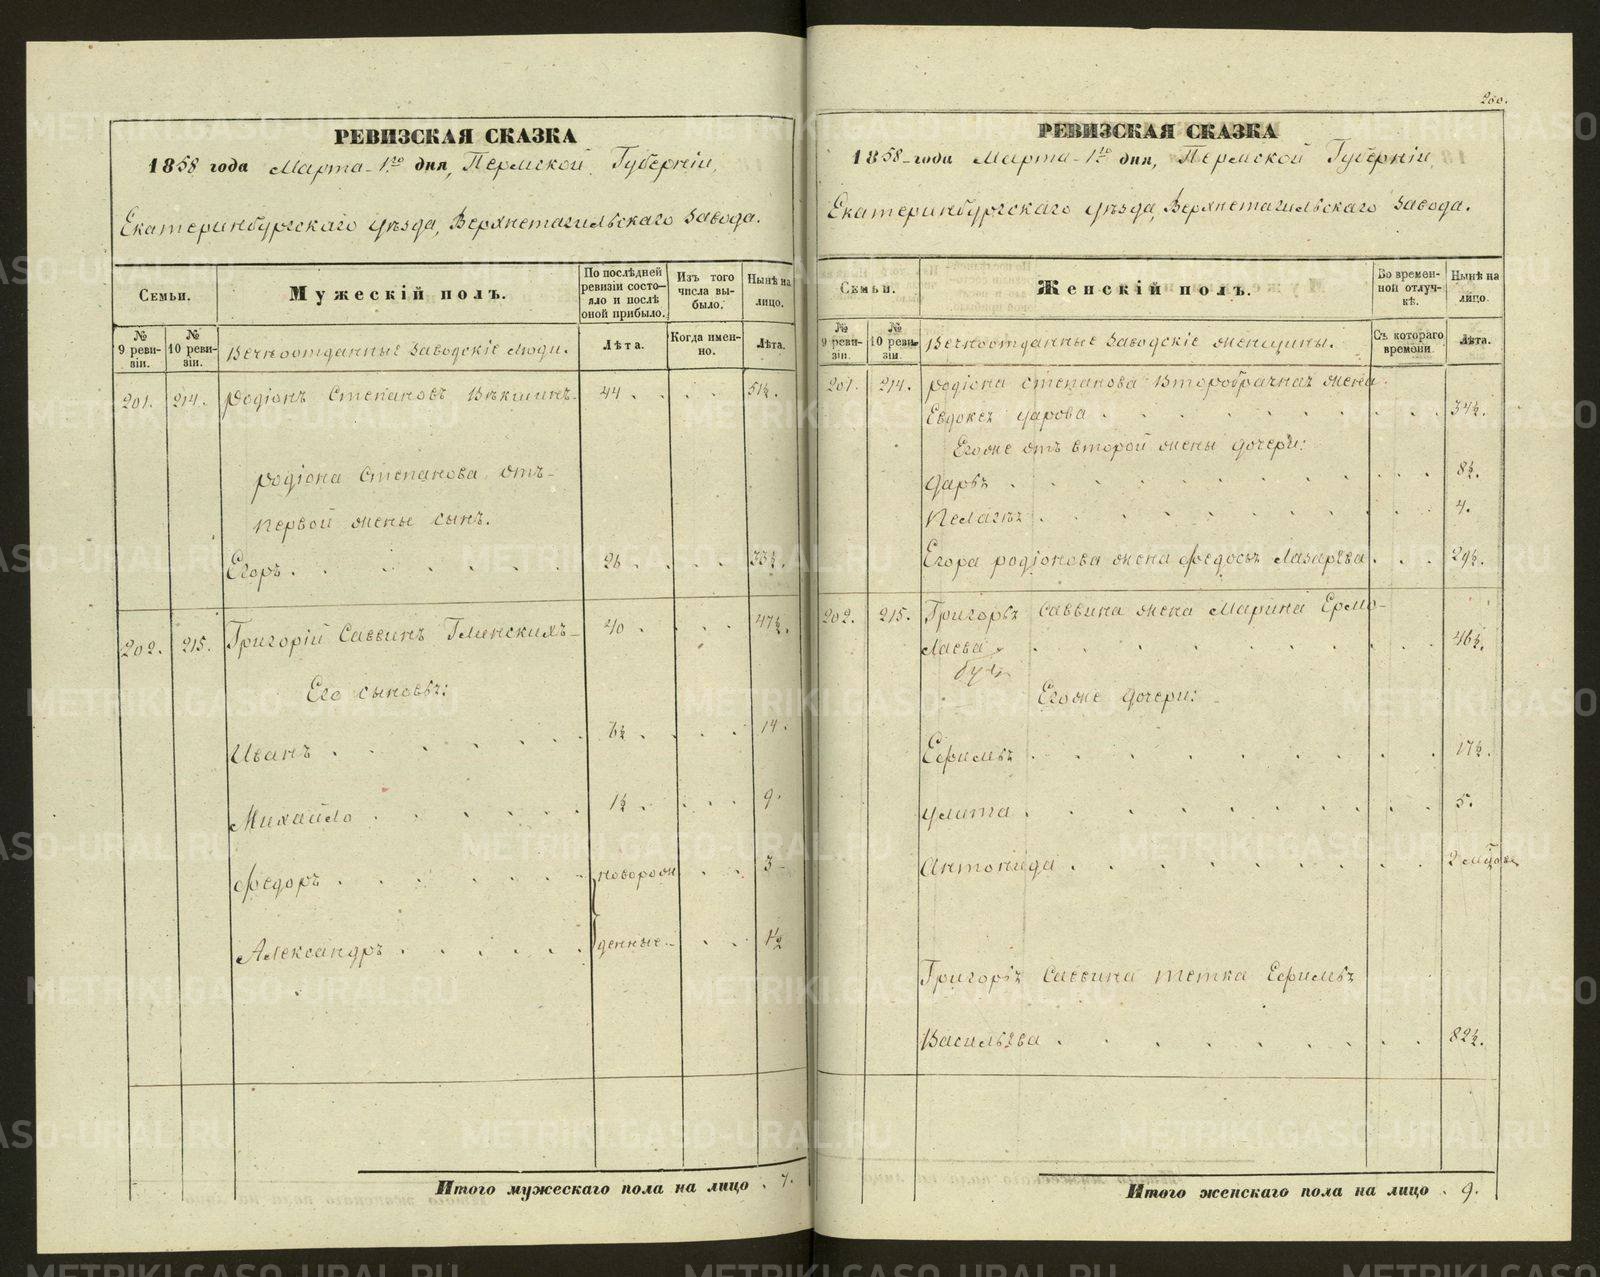 РЕВИЗСКАЯ СКАЗКА
1858 года Марта 1го дня, Пермской Губерніи,
Екатеринбургскаго уѣзда, Верхнетагильскаго завода.
Семьи. Мужескій полъ. По послѣдней ревизіи состояло и послѣ оной прибыло. Изъ того числа выбыло. Нынѣ на лицо.
№ 9 ревизіи. № 10 ревизіи. Вечноотданные заводскіе люди. Лѣта. Когда именно. Лѣта.
201. 214. Родіонъ Степановъ Вѣкшинъ 44 . . . . 51½.
Родіона Степанова отъ
первой жены сынъ.
Егоръ . . . . . . 26 . . . . 33½.
202. 215. Григорій Саввинъ Глинскихъ 40 . . . . 47½.
Его сыновья:
Иванъ . . . . . . 6½ . . . . 14.
Михайло . . . . . 1½ . . . . 9.
Федоръ . . . . . новорож . . 3
Александръ . . . . . денные . . 1½
Итого мужескаго пола на лицо . 7.
260.
РЕВИЗСКАЯ СКАЗКА
1858 года Марта 1го дня, Пермской Губерніи,
Екатеринбургскаго уѣзда, Верхнетагильскаго завода.
Семьи. Женскій полъ. Во временной отлучкѣ. Нынѣ на лицо.
№ 9 ревизіи. № 10 ревизіи. Вечноотданные заводскіе женщины. Съ котораго времени Лѣта.
201. 214. Родіона Степанова второбрачная жена
Евдокѣя Уарова . . . . . . . 34½.
Егоже отъ второй жены дочери:
Дарья . . . . . . . 8½.
Пелагѣя . . . . . . . 4.
Егора Родіонова жена Федосья Лазарѣва . . . 29½.
202. 215. Григорья Саввина жена Марина Ермо-
лаева . . . . . . . 46½.
Егоже дочери:
Ефимья . . . . . . . 17½.
Улита . . . . . . . 5.
Антонида . . . . . . . 2 мѣсяцовъ
Григорья Саввина тетка Ефимья
Васильѣва . . . . . . . 82½.
Итого женскаго пола на лицо . 9.
METRIKI.GASO-URAL.RU